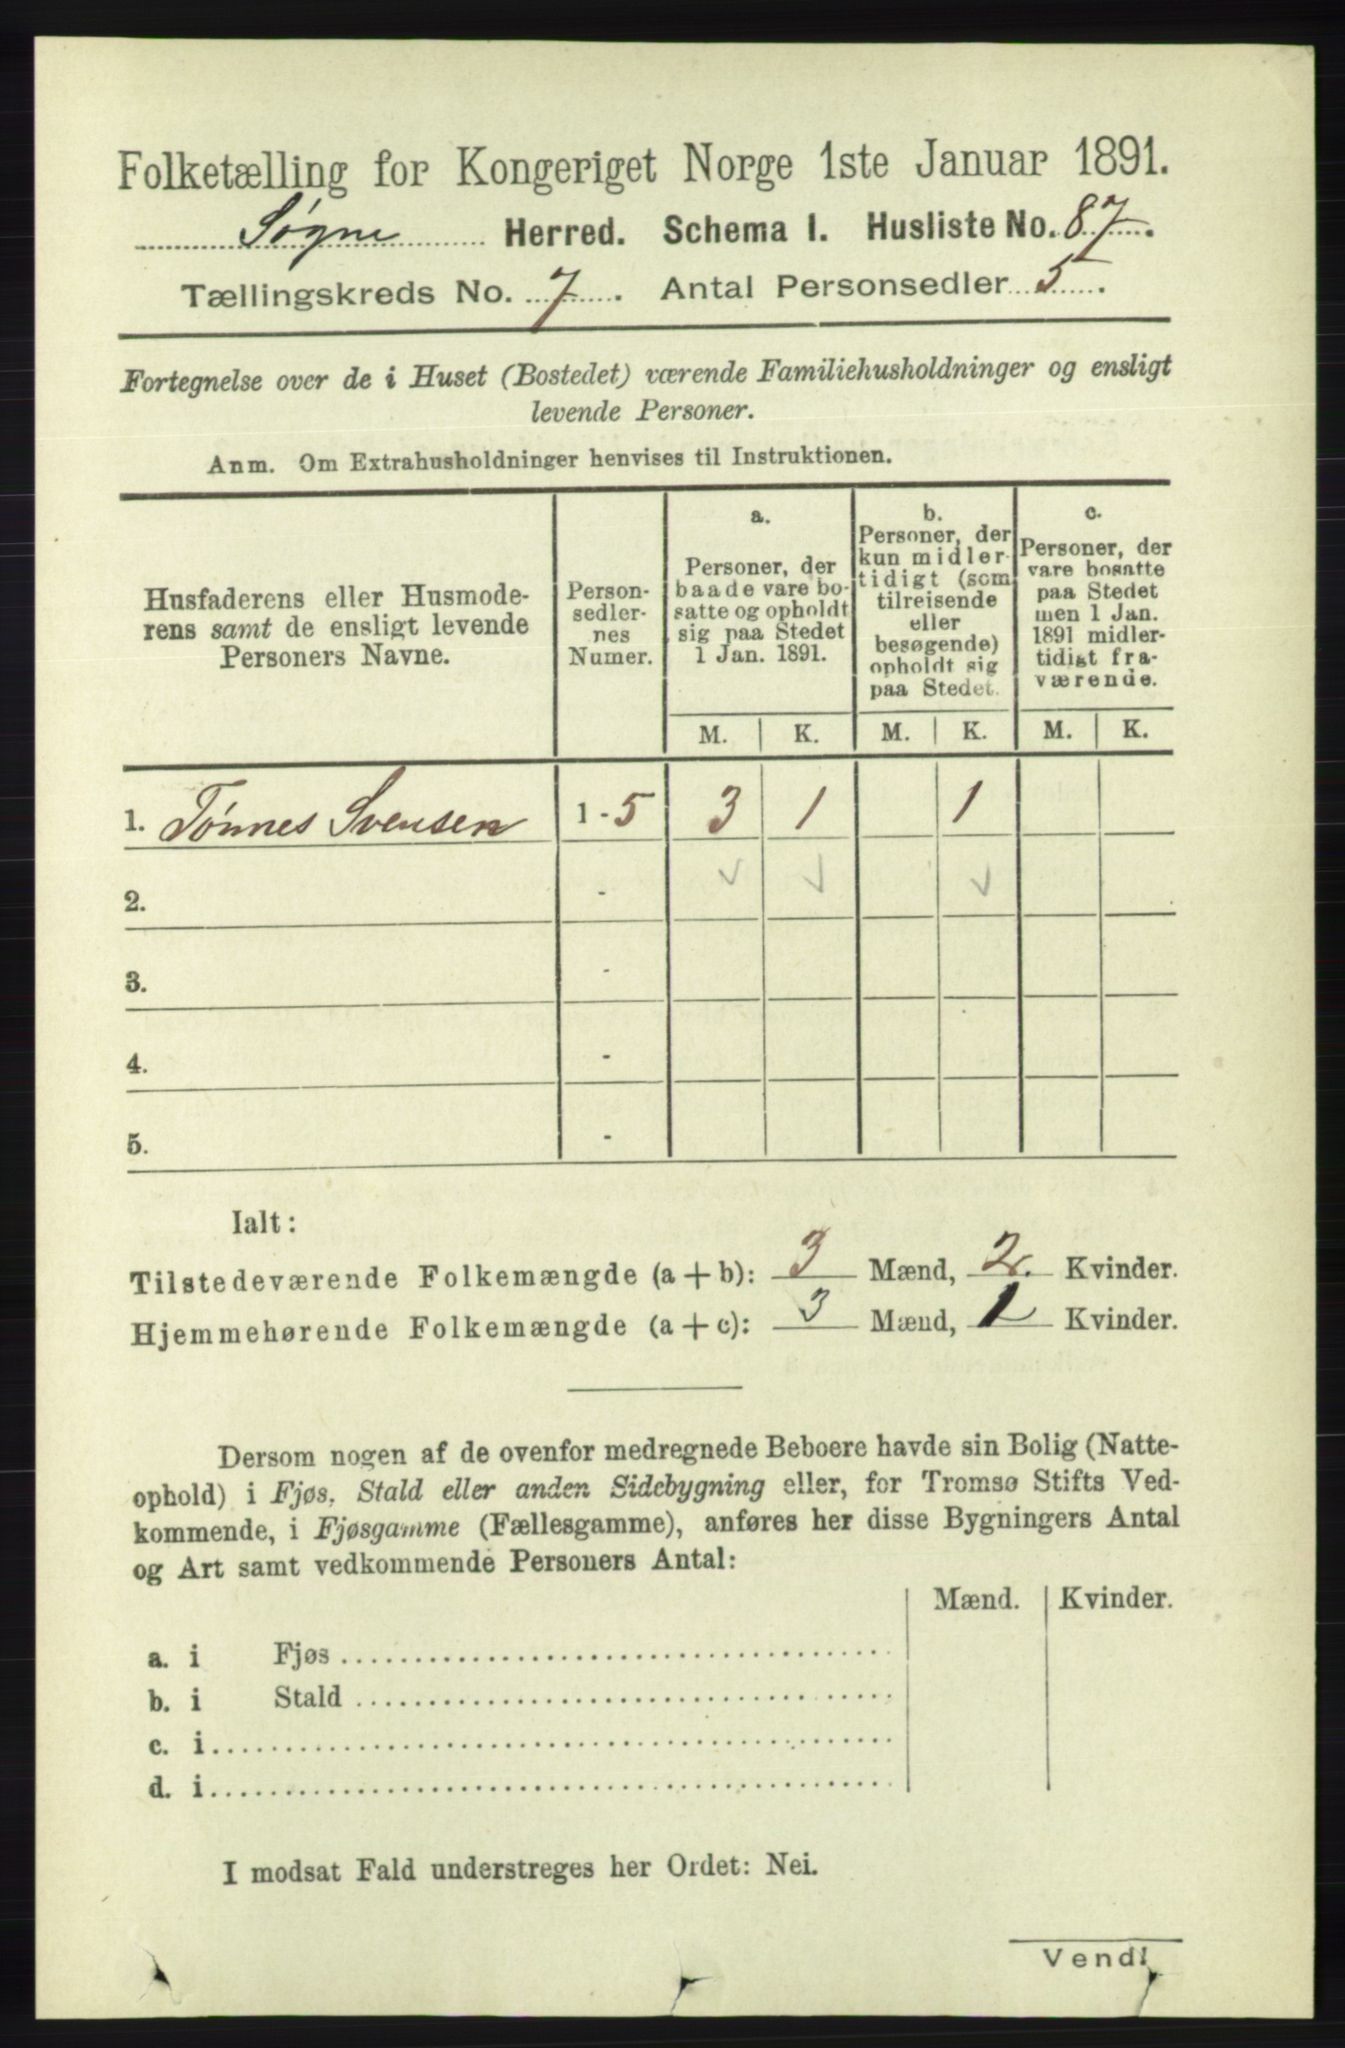 Folketælling for Kongeriget Norge 1ste Januar 1891.
Søgne Herred. Schema I. Husliste No. 87.
Tællingskreds No. 7. Antal Personsedler 5.
Fortegnelse over de i Huset (Bostedet) værende Familiehusholdninger og ensligt
levende Personer.
Anm. Om Extrahusholdninger henvises til Instruktionen.
Husfaderens eller Husmode-
rens samt de ensligt levende
Personers Navne.
Person-
sedler-
nes
Numer.
a.
Personer, der
baade vare bo-
satte og opholdt
sig paa Stedet
1 Jan. 1891.
b.
Personer, der
kun midler-
tidigt (som
tilreisende
eller
besøgende)
opholdt sig
paa Stedet.
c.
Personer, der
vare bosatte
paa Stedet
men 1 Jan.
1891 midler-
tidigt fra-
værende.
M. K. M. K. M. K.
1. Tønnes Svensen 1 - 5 3 1 1
2. -
3. -
4. -
5. -
Ialt:
Tilstedeværende Folkemængde (a + b): 3 Mænd, 2 Kvinder.
Hjemmehørende Folkemængde (a + c): 3 Mænd, 1 Kvinder.
Dersom nogen af de ovenfor medregnede Beboere havde sin Bolig (Natte-
ophold) i Fjøs, Stald eller anden Sidebygning eller, for Tromsø Stifts Ved-
kommende, i Fjøsgamme (Fællesgamme), anføres her disse Bygningers Antal
og Art samt vedkommende Personers Antal:
Mænd. Kvinder.
a. i Fjøs
b. i Stald
c. i
d. i
I modsat Fald understreges her Ordet: Nei.
Vend!